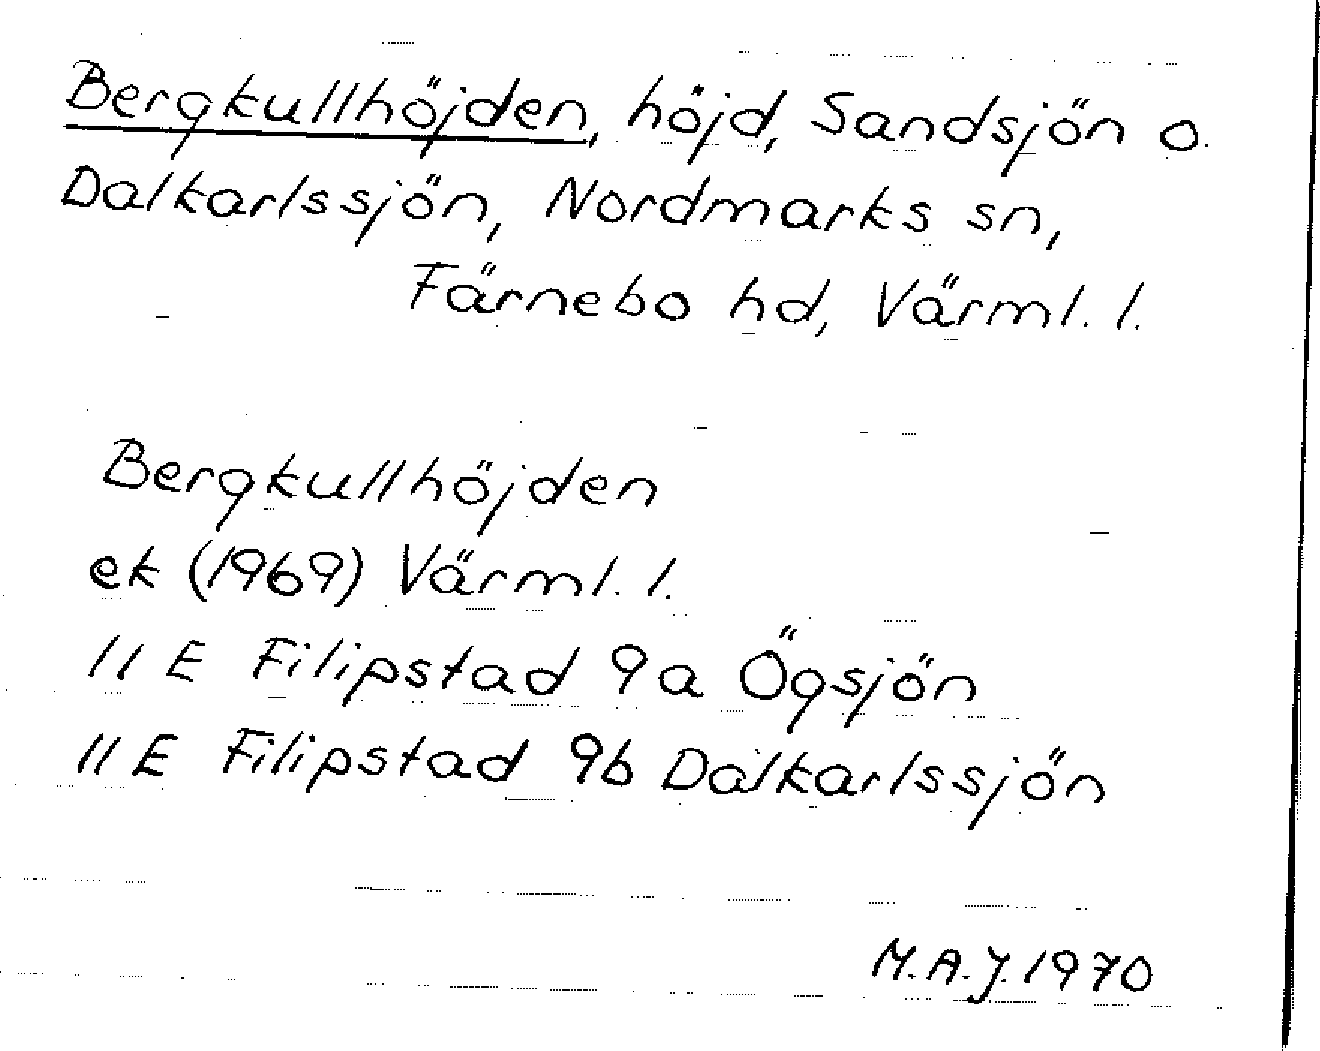 Bergkullhöjden, höjd, Sandsjön o.
Dalkarlssjön, Nordmarks sn,
Färnebo hd, Värml. l.
Bergkullhöjden
ek (1969) Värml. l.
11 E Filipstad 9a Ögsjön
11 E Filipstad 9b Dalkarlssjön
M.A.J. 1970